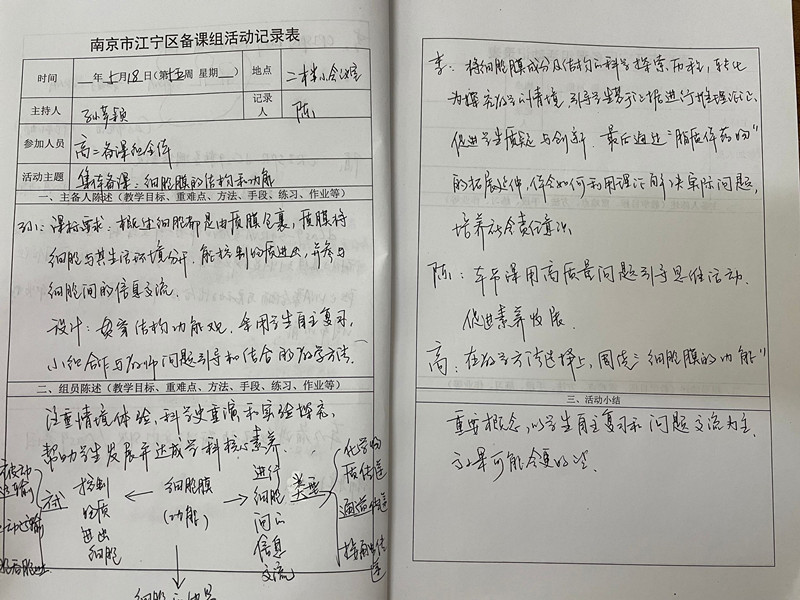 南京市江宁区备课组活动记录表
时间 __年5月18日(第15周 星期__) 地点 二楼小会议室
主持人 孙苹颖 记录人 陈
参加人员 高二备课组全体
活动主题 集体备课:细胞膜的结构和功能
一、主备人陈述(教学目标、重难点、方法、手段、练习、作业等)
孙:课标要求:概述细胞都是由质膜包裹,质膜将
细胞与其生活环境分开,能控制物质进出,并参与
细胞间的信息交流.
设计:贯穿结构功能观.采用学生自主复习,
小组合作与教师问题引导相结合的教学方法.
二、组员陈述(教学目标、重难点、方法、手段、练习、作业等)
注重情境体验,科学史重演和实验探究,
帮助学生发展并达成学科核心素养.
被动运输
方式
控制物质进出细胞
细胞膜(功能)
进行细胞间的信息交流
类型
化学物质传递
通道传递
接触传递
李:将细胞膜成分及结构的科学探索历程,转化
为探究教学的情境,引导学生基于证据进行推理论证.
促进学生质疑与创新.最后通过"脂质体药物"
的拓展延伸,体会如何利用理论解决实际问题,
培养社会责任意识.
陈:本节课用高质量问题引导思维活动.
促进素养发展.
高:在教学方法选择上,围绕"细胞膜的功能"
三、活动小结
重要概念,以学生自主复习和问题交流为主.
效果可能会更好些.